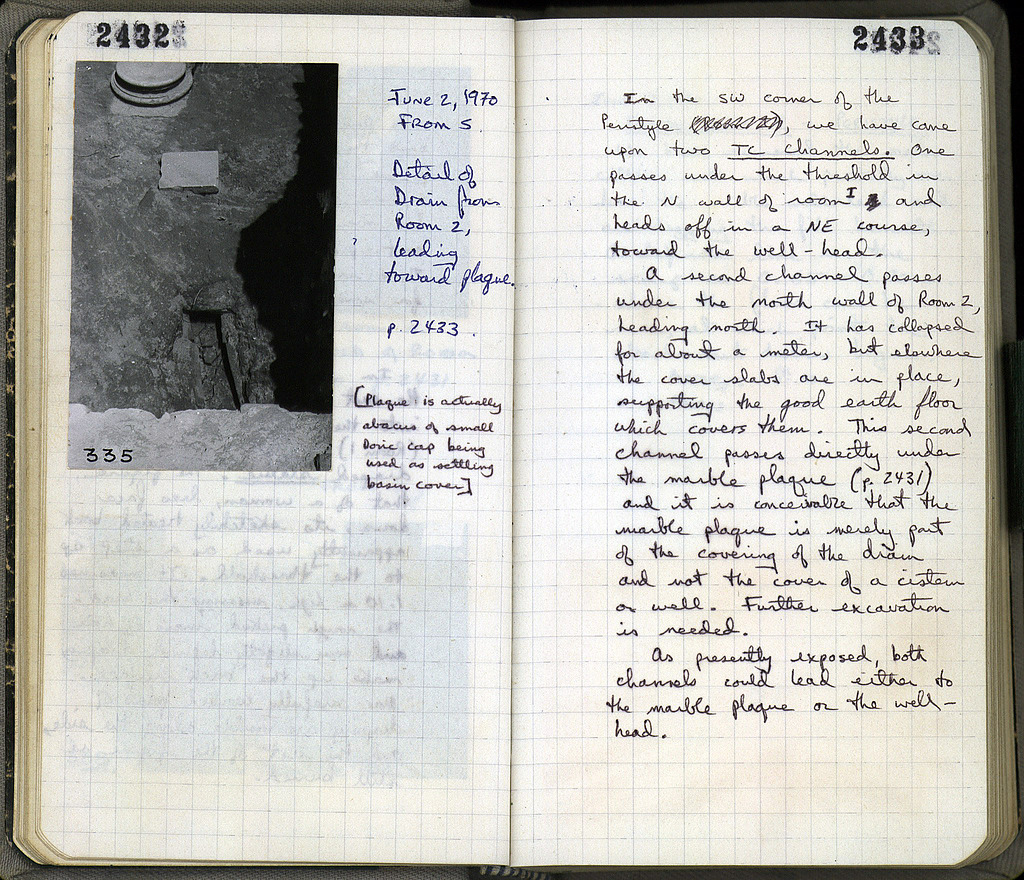 2432
335
June 2, 1970
From S.
Detail of
Drain from
Room 2,
leading
toward plaque.
p. 2433.
[Plaque is actually
abacus of small
Doric cap being
used as settling
basin cover]
2433
In the SW corner of the
Peristyle, we have come
upon two TC Channels. One
passes under the threshold in
the N wall of room I and
heads off in a NE course,
toward the well-head.
A second channel passes
under the north wall of Room 2,
heading north. It has collapsed
for about a meter, but elsewhere
the cover slabs are in place,
supporting the good earth floor
which covers them. This second
channel passes directly under
the marble plaque (p. 2431)
and it is conceivable that the
marble plaque is merely part
of the covering of the drain
and not the cover of a cistern
or well. Further excavation
is needed.
As presently exposed, both
channels could lead either to
the marble plaque or the well-
head.